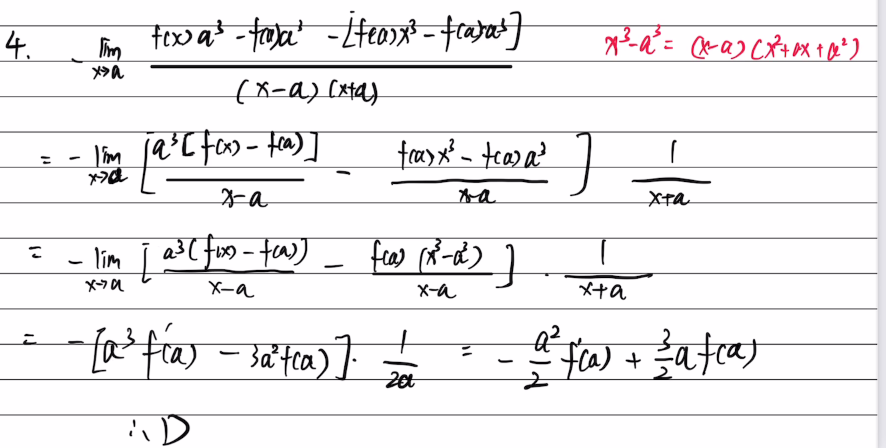 4. -lim x→a f(x)a³ - f(a)a³ - [f(a)x³ - f(a)a³] / (x-a)(x+a) x³-a³ = (x-a)(x²+ax+a²)
= -lim x→a [ a³[f(x) - f(a)] / x-a - f(a)x³ - f(a)a³ / x-a ] 1 / x+a
= -lim x→a [ a³(f(x) - f(a)) / x-a - f(a)(x³-a³) / x-a ] · 1 / x+a
= -[a³f'(a) - 3a²f(a)] · 1/2a = - a²/2 f'(a) + 3/2 a f(a)
∴ D